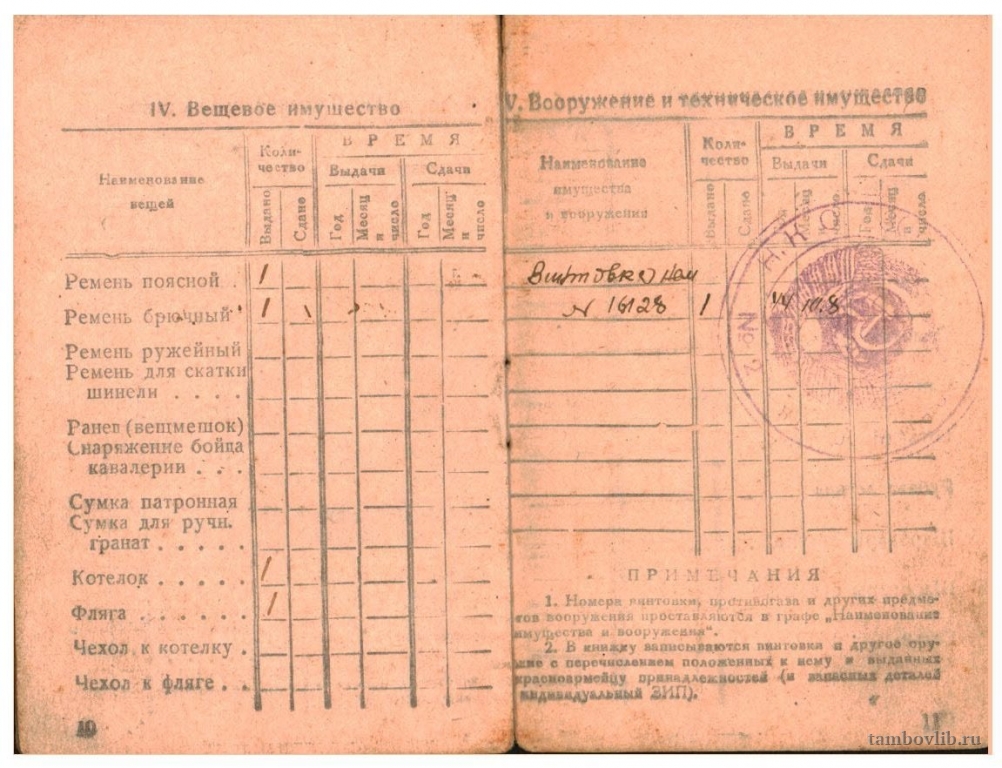 IV. Вещевое имущество
Наименование
вещей
Коли-
чество
ВРЕМЯ
Выдачи
Сдачи
Выдано
Сдано
Год
Месяц
и
число
Год
Месяц
и
число
Ремень поясной . 1
Ремень брючный 1
Ремень ружейный
Ремень для скатки
шинели . . . .
Ранец (вещмешок)
Снаряжение бойца
кавалерии . . .
Сумка патронная
Сумка для ручн.
гранат . . . . .
Котелок . . . . . 1
Фляга . . . . . . 1
Чехол к котелку .
Чехол к фляге . .
10
V. Вооружение и техническое имущество
Наименование
имущества
и вооружения
Коли-
чество
ВРЕМЯ
Выдачи
Сдачи
Выдано
Сдано
Месяц
число
Год
Месяц
и
число
Винтовка
N 16128 1 10.8
Н.К.О.
№ 2
ПРИМЕЧАНИЯ
1. Номера винтовки, противогаза и других предме-
тов вооружения проставляются в графе „Наименование
имущества и вооружения“.
2. В книжку записываются винтовки и другое ору-
жие с перечислением положенных к нему и выданных
красноармейцу принадлежностей (и запасных деталей
индивидуальный ЗИП).
11
tambovlib.ru